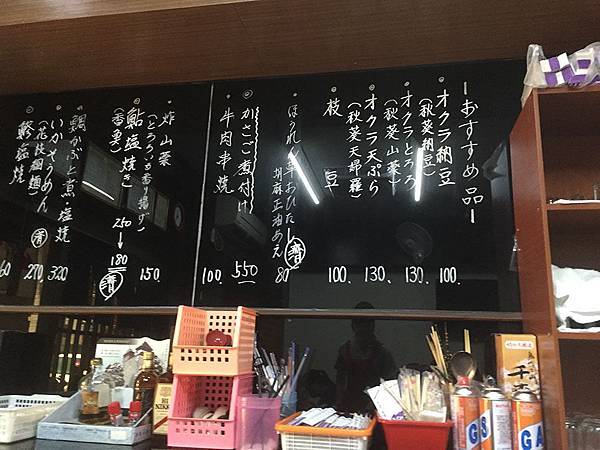 －おすすめ品－
・オクラ納豆
（秋葵納豆）
100.
・オクラとろろ
（秋葵山藥）
130、
・オクラ天ぷら
（秋葵天婦羅）
130、
・枝豆
100、
ほうれん草おひたし
胡麻正油あえ
清
80
◎かさご煮付け
550
・牛肉串焼
100、
・炸山藥
（とろろいも香り揚げ）
150、
◎鮎塩焼き
（香魚）
250→180
清
鯛かぶと煮・塩焼
320
・いかそうめん
（花枝細麺）
清
270
塩焼
60
NIKKA
GAS
GA